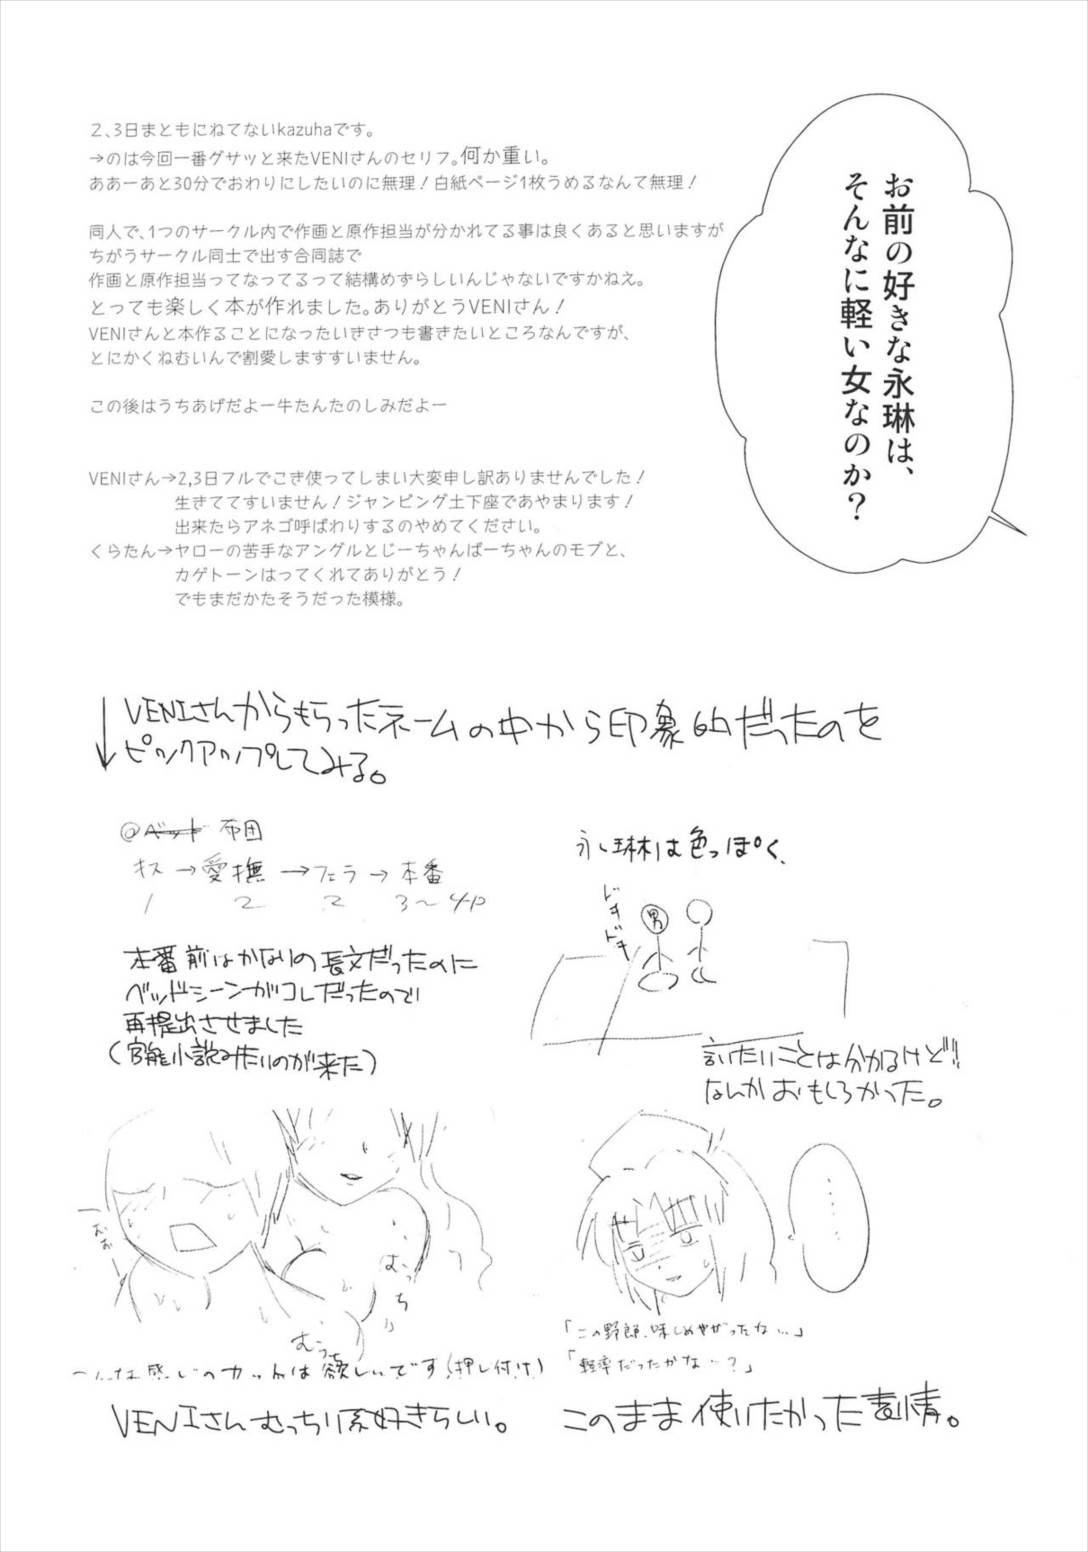 2、3日まともにねてないkazuhaです。
→のは今回一番グサッと来たVENIさんのセリフ。何か重い。
ああーあと30分でおわりにしたいのに無理！白紙ページ1枚うめるなんて無理！
同人で、1つのサークル内で作画と原作担当が分かれてる事は良くあると思いますが
ちがうサークル同士で出す合同誌で
作画と原作担当ってなってるって結構めずらしいんじゃないですかねえ。
とっても楽しく本が作れました。ありがとうVENIさん！
VENIさんと本作ることになったいきさつも書きたいところなんですが、
とにかくねむいんで割愛しますすいません。
この後はうちあげだよー牛たんたのしみだよー
VENIさん→2,3日フルでこき使ってしまい大変申し訳ありませんでした！
生きててすいません！ジャンピング土下座であやまります！
出来たらアネゴ呼ばわりするのやめてください。
くらたん→ヤローの苦手なアングルとじーちゃんばーちゃんのモブと、
カゲトーンはってくれてありがとう！
でもまだかたそうだった模様。
お前の好きな永琳は、
そんなに軽い女なのか？
↓VENIさんからもらったネームの中から印象的だったのを
ピックアップしてみる。
@ベット 布団
キス→愛撫→フェラ→本番
1 2 2 3〜4P
本番前はかなりの長文だったのに
ベッドシーンがコレだったので
再提出させました
(官能小説みたいのが来た)
永琳は色っぽく、
ドキドキ
男
言いたいことは分かるけど!!
なんかおもしろかった。
むっちり
むっち
こんな感じのカットは欲しいです(押し付け)
VENIさんむっちり系好きらしい。
……
「この野郎、味しめやがったな…」
「軽率だったかな…？」
このまま使いたかった表情。